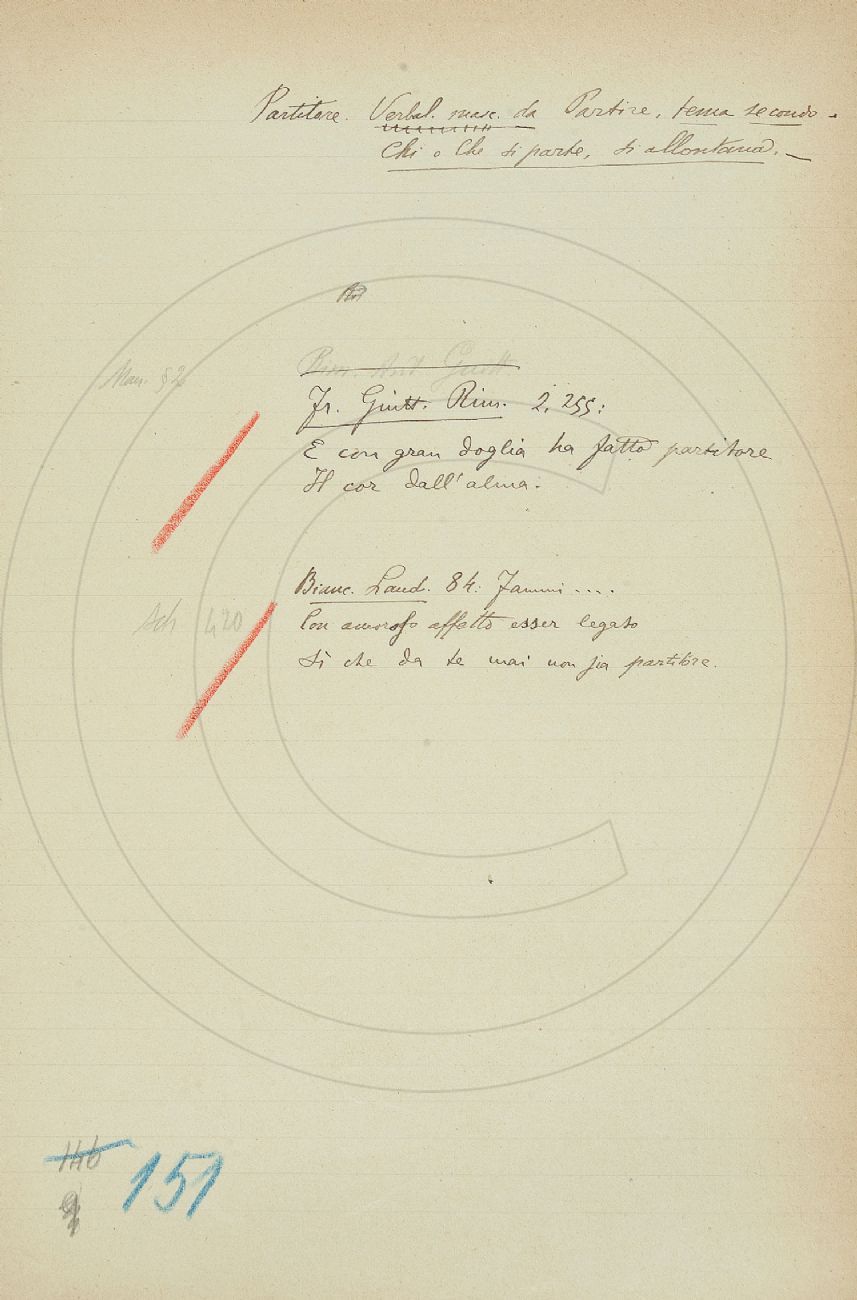 Partitore. Verbal. masc. da Partire, tema secondo.
Chi o Che si parte, si allontana.
Fr. Guitt. Rim. 2, 255:
E con gran doglia ha fatto partitore
Il cor dall'alma.
Bianc. Laud. 84: Fammi....
Con amoroso affetto esser legato
Sì che da te mai non sia partitore.
146 151